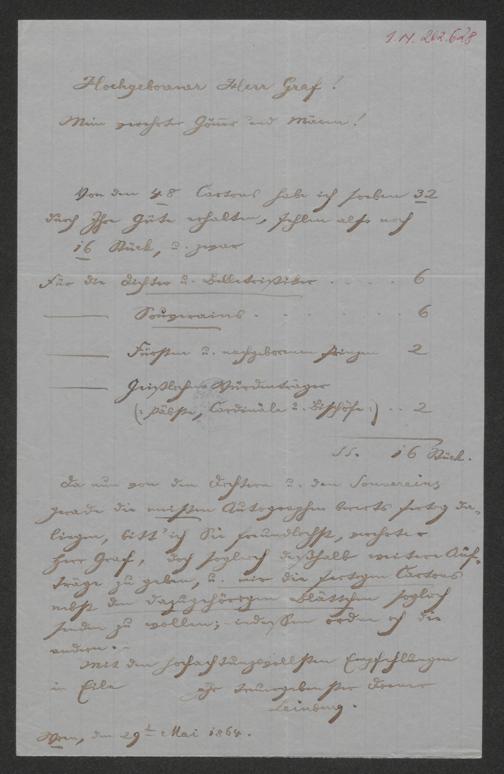 I.N. 262.628
Hochgeborener Herr Graf!
Mein verehrter Gönner und Mäcen!
Von den 48 Cartons habe ich soeben 32
durch Ihre Güte erhalten, fehlen also noch
16 Stück, u. zwar
Für die Dichter u. Belletristiker . . . . . 6
——— Souverains . . . . . . . 6
——— Fürsten u. nachgeborenen Prinzen 2
——— Geistlichen Würdenträger
(: Päbste, Cardinäle u. Bischöfe :) . . 2
SS. 16 Stück.
Da nun von den Dichtern u. den Souverains
gerade die meisten Autographen bereits fertig da-
liegen, bitt' ich Sie freundlichst, verehrter
Herr Graf, doch sogleich deßhalb weitere Auf-
träge zu geben, u. mir die fertigen Cartons
nebst den dazugehörigen Blättchen sogleich
senden zu wollen; indessen ordne ich die
andern. –
Mit den hochachtungsvollsten Empfehlungen
in Eile Ihr treuergebenster Diener
Leinburg.
Wien, den 29t Mai 1864.